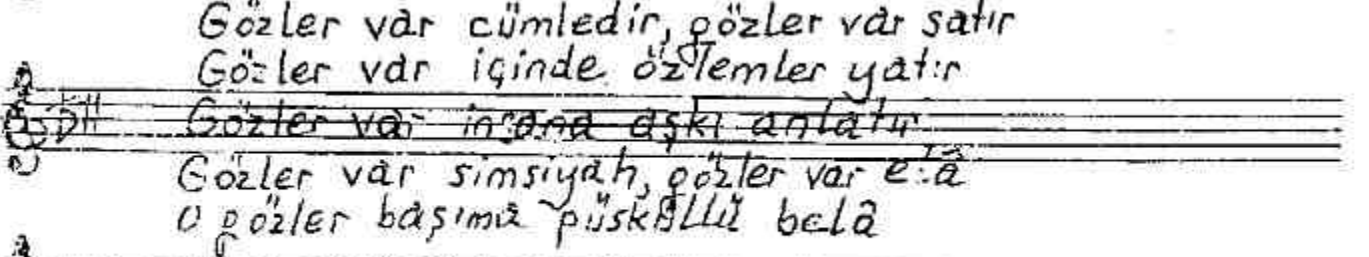 Gözler var cümledir, gözler var satır
Gözler var içinde özlemler yatır
Gözler var insana aşkı anlatır
Gözler var simsiyah, gözler var elâ
O gözler başıma püsküllü belâ